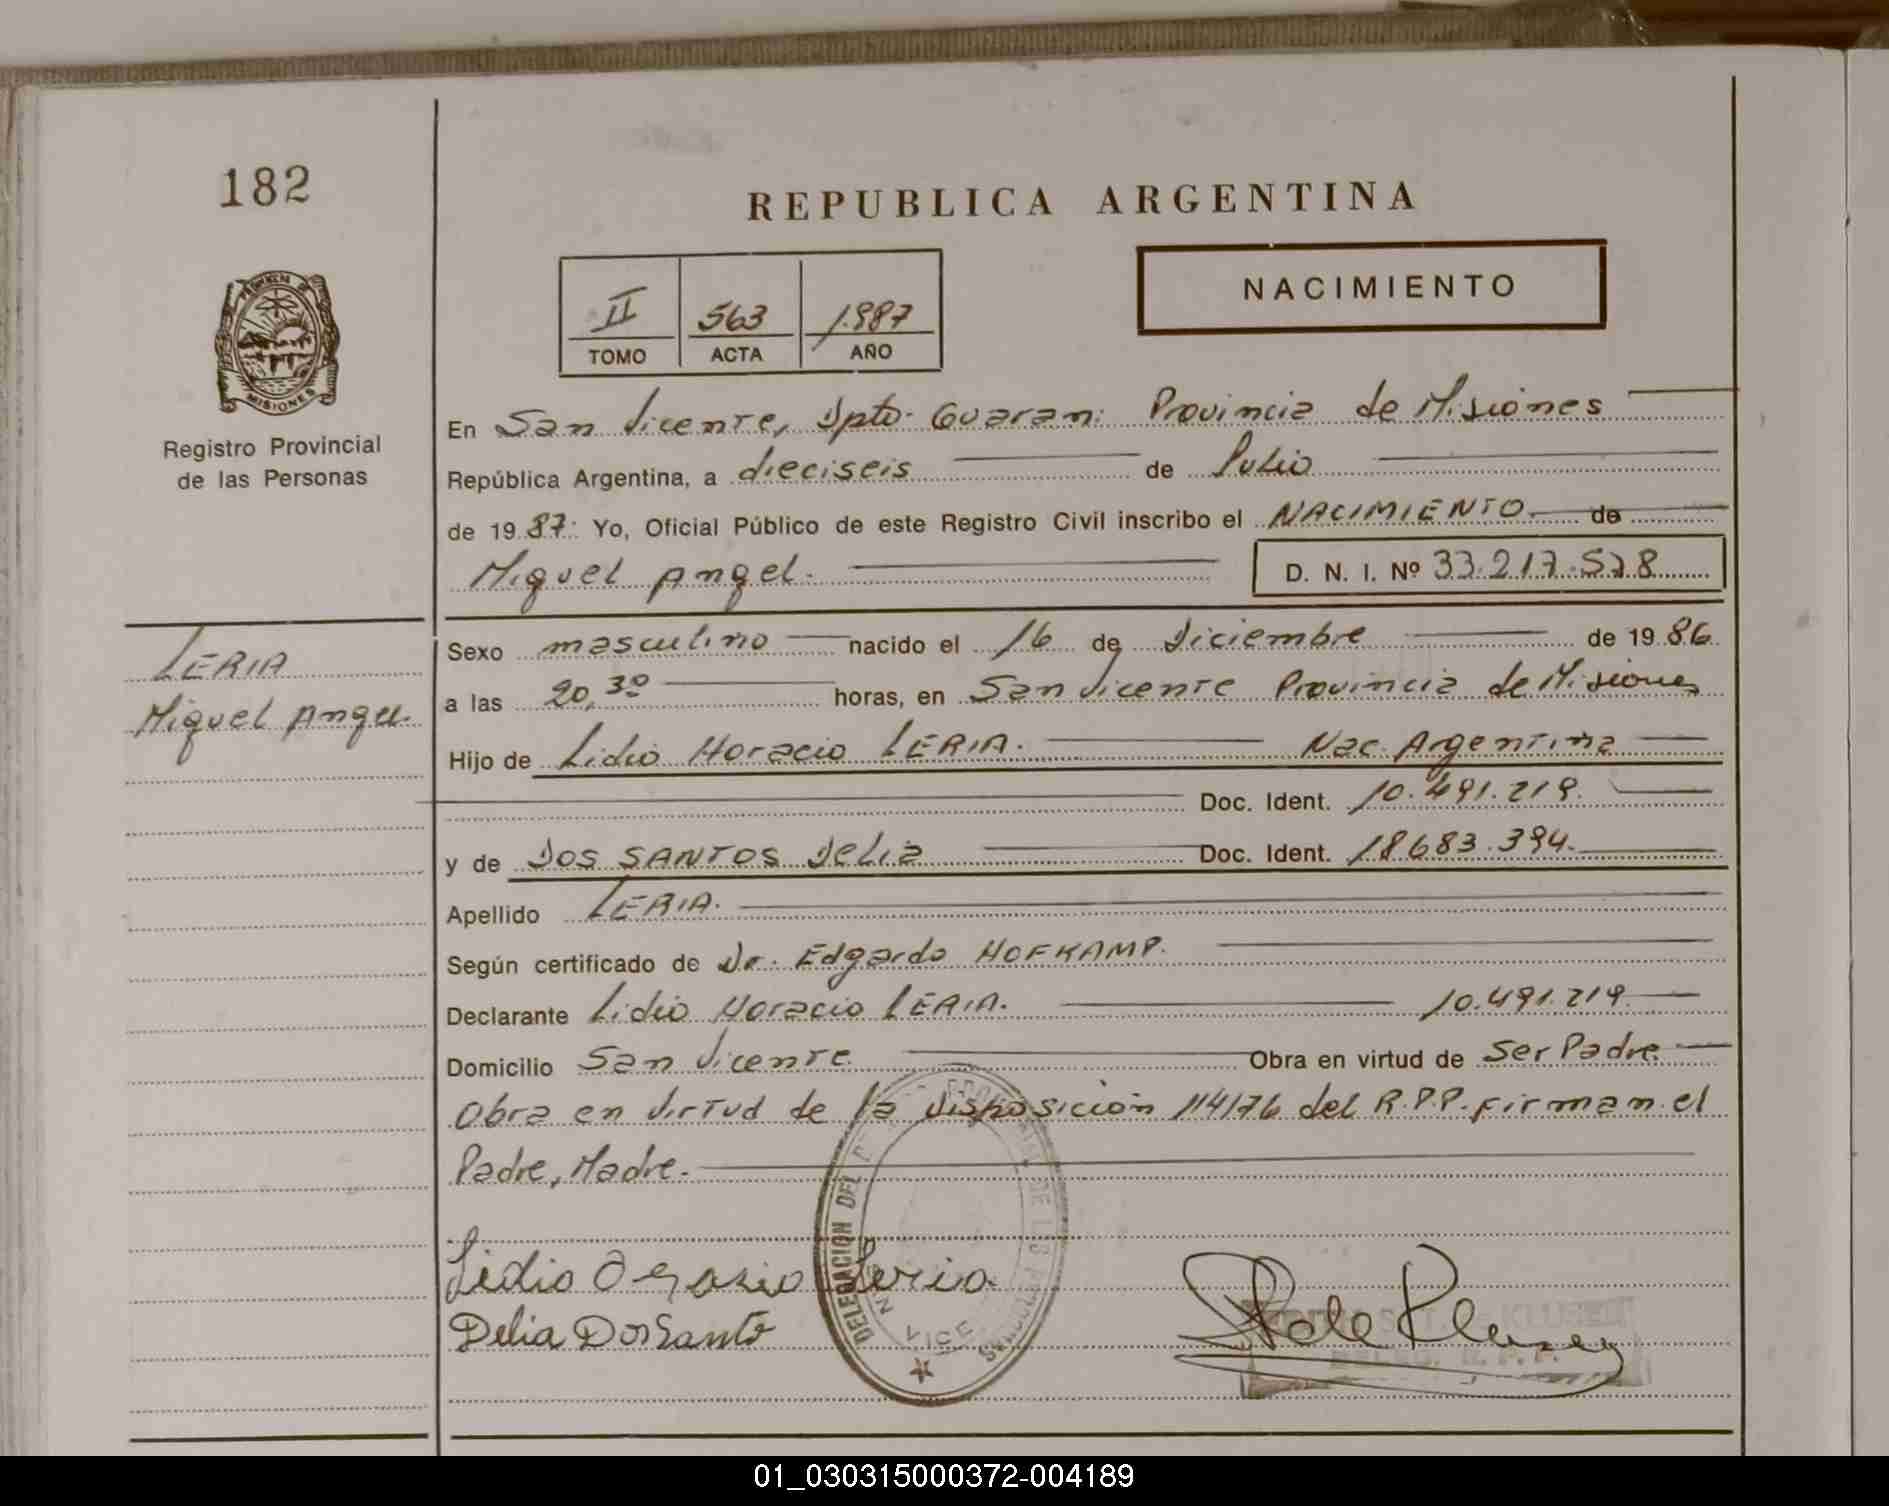 182
REPUBLICA ARGENTINA
NACIMIENTO
II 563 1.987
TOMO ACTA AÑO
PROVINCIA DE
MISIONES
Registro Provincial
de las Personas
En San Vicente, Dpto. Guarani Provincia de Misiones
República Argentina, a dieciseis de Julio
de 1987: Yo, Oficial Público de este Registro Civil inscribo el NACIMIENTO. de
Miguel Angel. D. N. I. Nº 33.217.578
LERIA
Miguel Angel.
Sexo masculino nacido el 16 de Diciembre de 1986.
a las 20,30 horas, en San Vicente Provincia de Misiones
Hijo de Lidio Horacio LERIA. Nac. Argentina
Doc. Ident. 10.491.219.
y de DOS SANTOS Delia Doc. Ident. 18683.394.
Apellido LERIA.
Según certificado de Dr. Edgardo HOFKAMP.
Declarante Lidio Horacio LERIA. 10.491.219.
Domicilio San Vicente. Obra en virtud de ser Padre.
Obra en virtud de la disposición 114/76 del R.P.P. firman el
Padre, Madre.
DELEGACION DEL DE LAS PERSONAS
Lidio Leria
Delia DosSanto
01_030315000372-004189